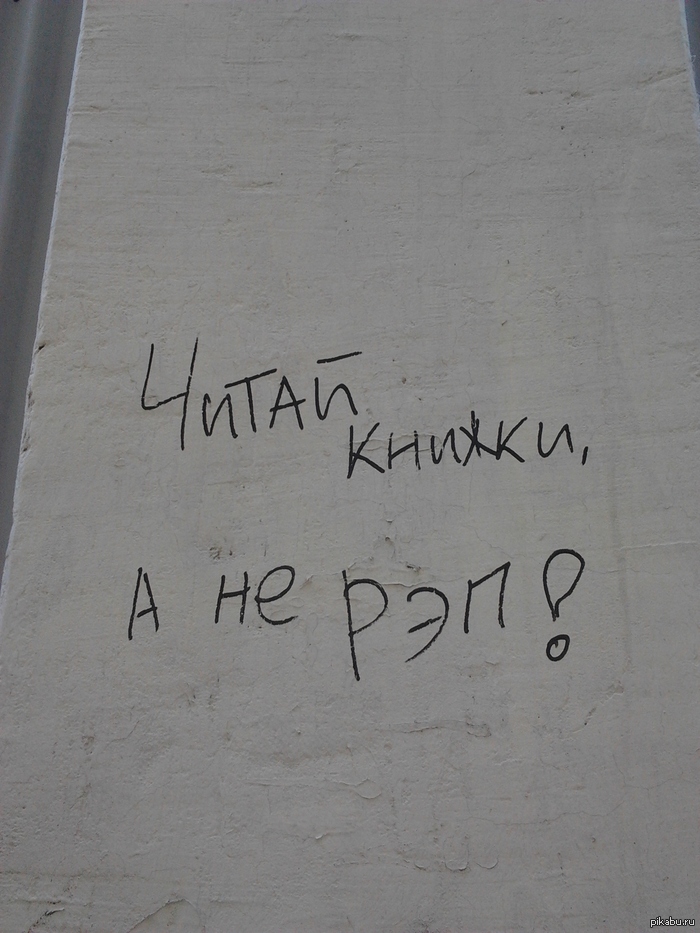 Читай
книжки,
а не рэп!
pikabu.ru